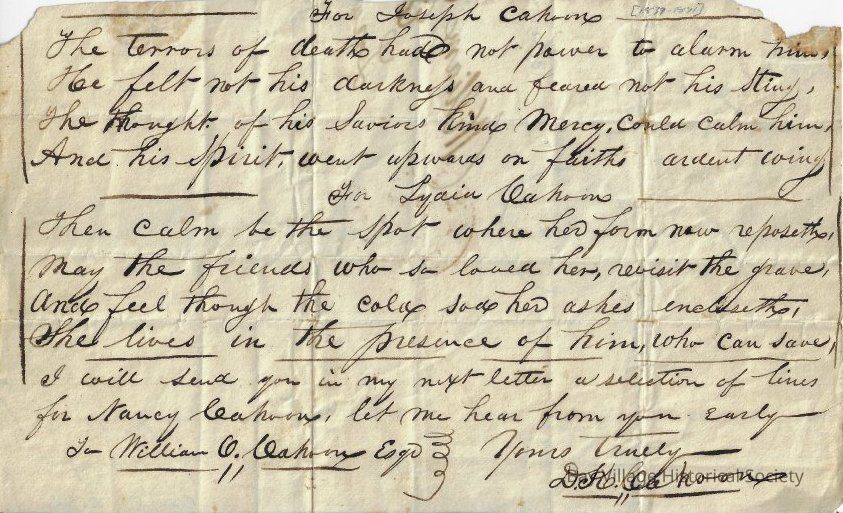 For Joseph Cahoon
The terrors of death had not power to alarm him,
He felt not his darkness and feared not his Sting,
The thought of his Saviors kind Mercy, could calm him,
And his spirit, went upwards on faiths ardent wing
For Lydia Cahoon
Then calm be the spot where her form now reposeth,
May the friends who so loved her, revisit the grave,
And feel though the cold sod her ashes encloseth,
She lives in the presence of him, who can save,
I will send you in my next letter a selection of lines
for Nancy Cahoon, let me hear from you early
To William O. Cahoon Esqr Yours Truely
D. R. Cahoon
Bay Village Historical Society